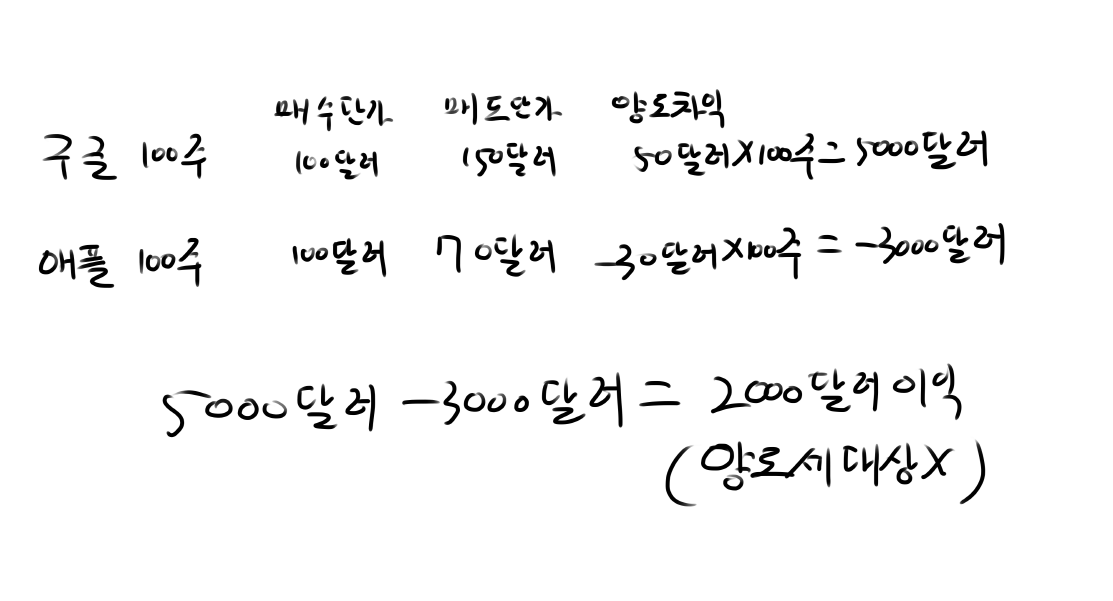 매수단가 매도단가 양도차익
구글 100주 100달러 150달러 50달러X100주=5000달러
애플 100주 100달러 70달러 -30달러X100주=-3000달러
5000달러 -3000달러 = 2000달러 이익
(양로세대상X)